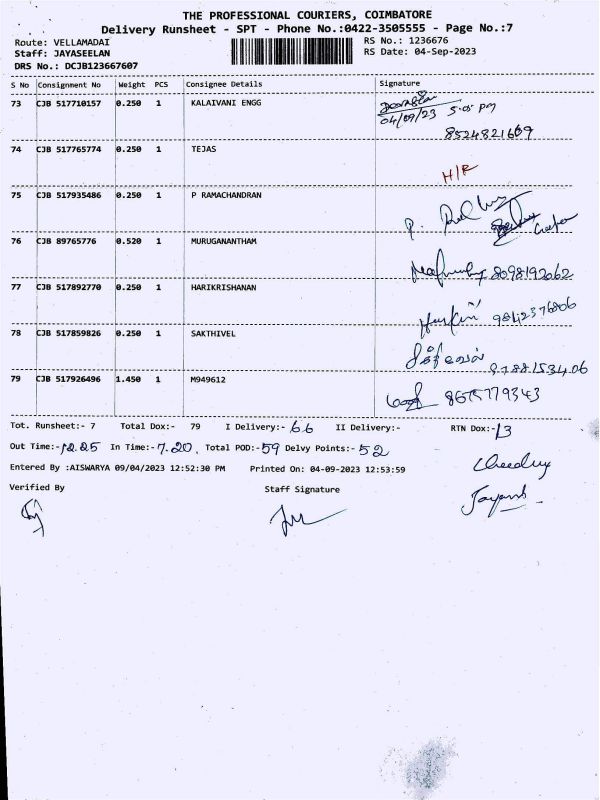 THE PROFESSIONAL COURIERS, COIMBATORE
Delivery Runsheet - SPT - Phone No.:0422-3505555 - Page No.:7
Route: VELLAMADAI RS No.: 1236676
Staff: JAYASEELAN RS Date: 04-Sep-2023
DRS No.: DCJB123667607
S No Consignment No Weight PCS Consignee Details Signature
73 CJB 517710157 0.250 1 KALAIVANI ENGG
04/09/23 5.05 PM
8524821609
74 CJB 517765774 0.250 1 TEJAS
H/R
75 CJB 517935486 0.250 1 P RAMACHANDRAN
P.
76 CJB 89765776 0.520 1 MURUGANANTHAM
8098192062
77 CJB 517892770 0.250 1 HARIKRISHANAN
9842376806
78 CJB 517859826 0.250 1 SAKTHIVEL
சக்திவேல்
9788153406
79 CJB 517926496 1.450 1 M949612
8675779343
Tot. Runsheet:- 7 Total Dox:- 79 I Delivery:- 66 II Delivery:- RTN Dox:- 13
Out Time:- 12.25 In Time:- 7.20, Total POD:- 59 Delvy Points:- 52
Entered By :AISWARYA 09/04/2023 12:52:30 PM Printed On: 04-09-2023 12:53:59
Verified By Staff Signature